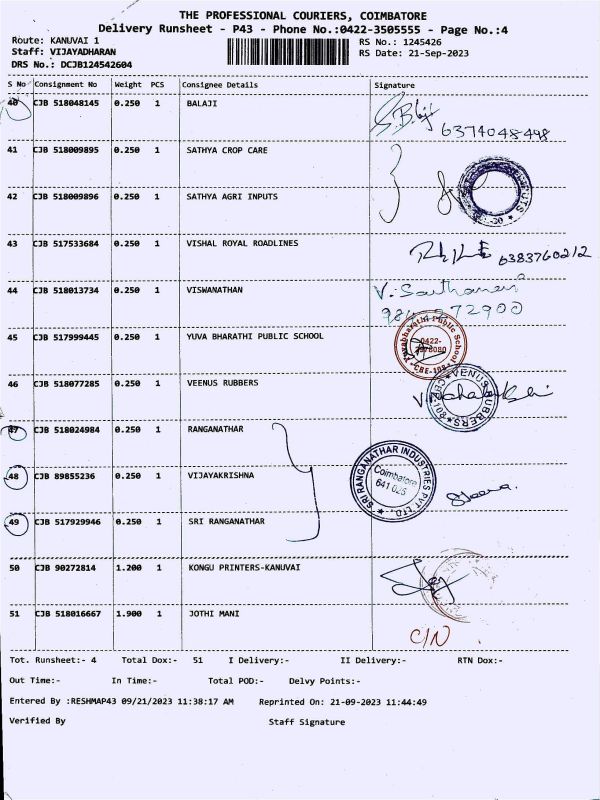 THE PROFESSIONAL COURIERS, COIMBATORE
Delivery Runsheet - P43 - Phone No.:0422-3505555 - Page No.:4
Route: KANUVAI 1 RS No.: 1245426
Staff: VIJAYADHARAN RS Date: 21-Sep-2023
DRS No.: DCJB124542604
S No Consignment No Weight PCS Consignee Details Signature
40 CJB 518048145 0.250 1 BALAJI
6374048498
41 CJB 518009895 0.250 1 SATHYA CROP CARE
42 CJB 518009896 0.250 1 SATHYA AGRI INPUTS
43 CJB 517533684 0.250 1 VISHAL ROYAL ROADLINES
6383760212
44 CJB 518013734 0.250 1 VISWANATHAN
45 CJB 517999445 0.250 1 YUVA BHARATHI PUBLIC SCHOOL
Yuvabharathi Public School
0422-
46 CJB 518077285 0.250 1 VEENUS RUBBERS
VENUS RUBBERS
47 CJB 518024984 0.250 1 RANGANATHAR
48 CJB 89855236 0.250 1 VIJAYAKRISHNA
SRI RANGANATHAR INDUSTRIES PVT LTD.,
Coimbatore
641 026
49 CJB 517929946 0.250 1 SRI RANGANATHAR
50 CJB 90272814 1.200 1 KONGU PRINTERS-KANUVAI
51 CJB 518016667 1.900 1 JOTHI MANI
C/N
Tot. Runsheet:- 4 Total Dox:- 51 I Delivery:- II Delivery:- RTN Dox:-
Out Time:- In Time:- Total POD:- Delvy Points:-
Entered By :RESHMAP43 09/21/2023 11:38:17 AM Reprinted On: 21-09-2023 11:44:49
Verified By Staff Signature